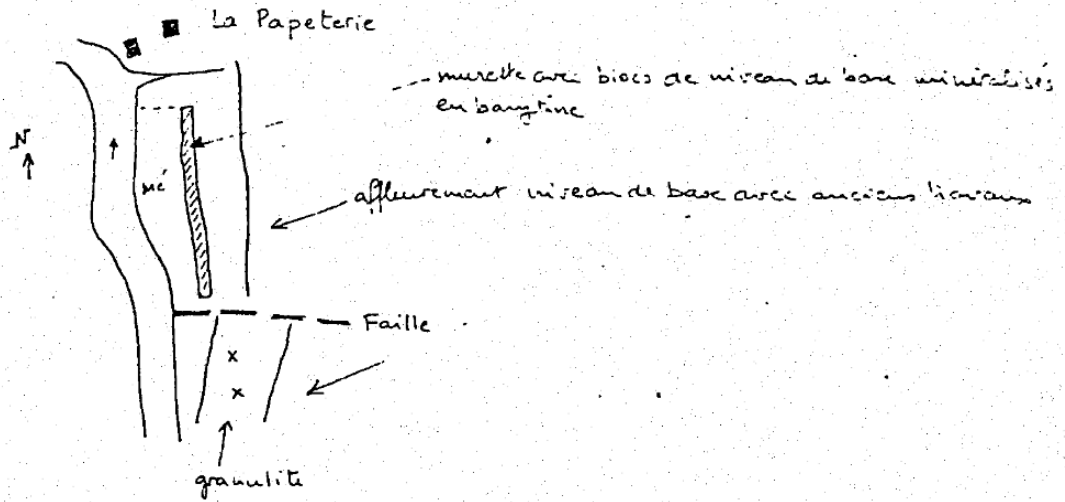 La Papeterie
murette avec blocs de niveau de base minéralisés
en barytine
N
mé
affleurement niveau de base avec anciens travaux
Faille
x
x
granulite